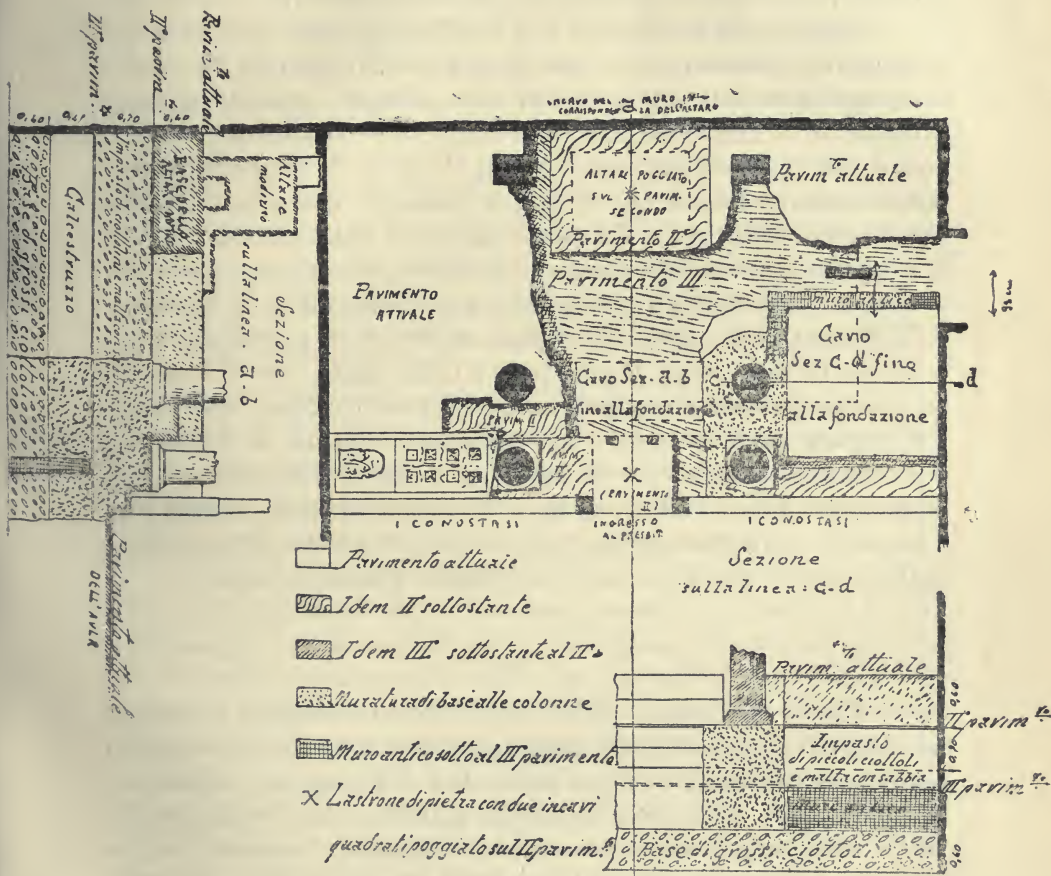 Paviz. attuale
II° pavim.to
III° pavim.to
0,60
0,40
Calcestruzzo
Altare moderno
Sezione
sulla linea. a-b
Pavimento attuale
DELL'AULA
INCAVO NEL MURO
CORRISPOND. LA DELL'ALTARE
ALTARE POGGIATO
SUL PAVIM.
SECONDO
Pavimento II°
Pavim.to attuale
PAVIMENTO
ATTUALE
Pavimento III
muro antico
Cavo
Sez C-d fino
alla fondazione
d
Cavo Sez. a.b
fino alla fondazione
C
PAVIM II
X
(PAVIMENTO
II)
ICONOSTASI
INGRESSO
AL PRESBIT.
ICONOSTASI
Pavimento attuale
Idem II sottostante
Idem III sottostante al II°
Muratura di base alle colonne
Muro antico sotto al III pavimento
X Lastrone di pietra con due incavi
quadrati poggiato sul II pavim.°
Sezione
sulla linea: C-d
Pavim.to attuale
0,60
II pavim.to
Impasto
di piccoli ciottoli
e malta con sabbia
III pavim.to
Base di grossi ciottoli
0,60